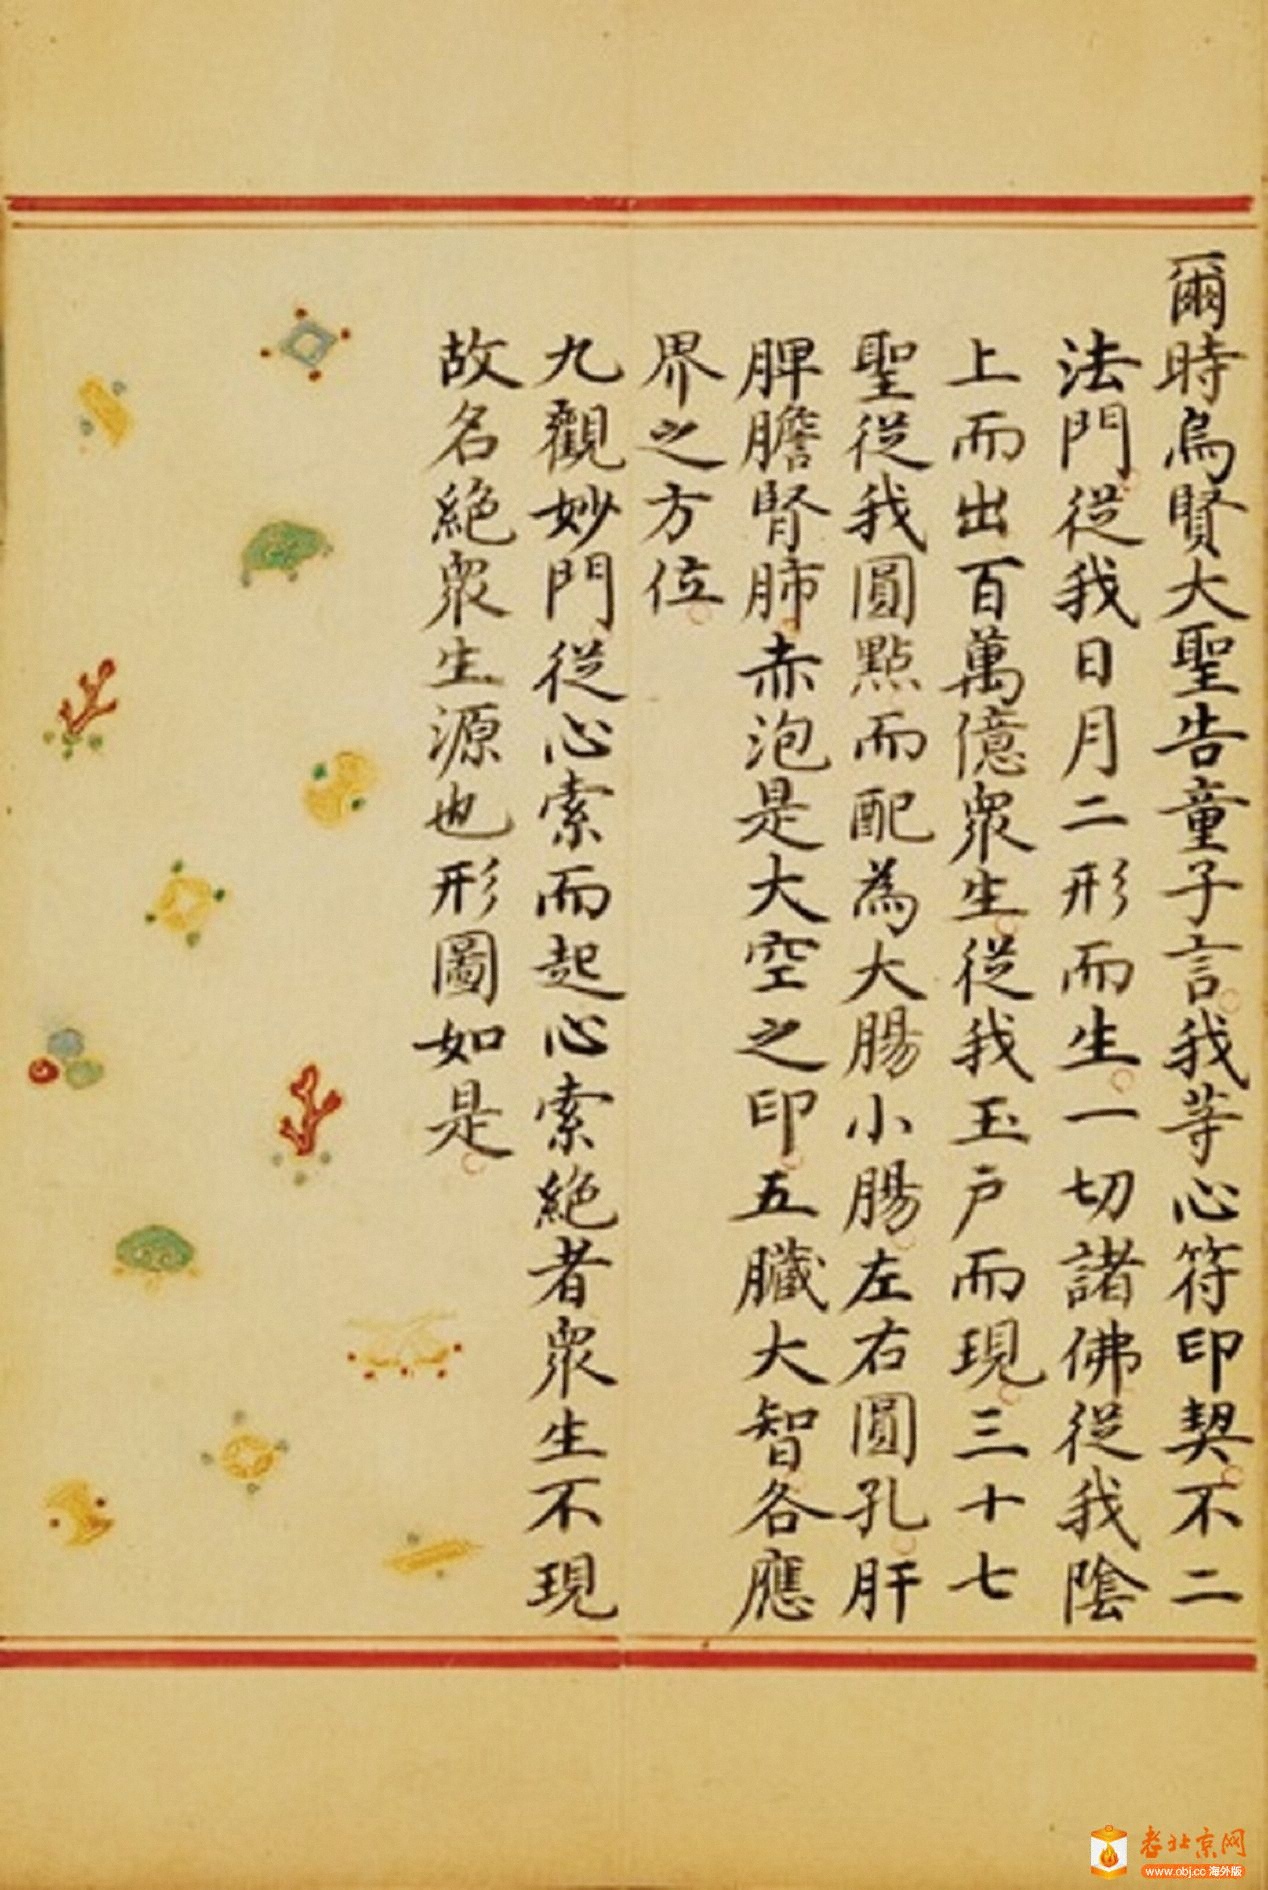 爾時烏賢大聖告童子言我等心符印契不二
法門從我日月二形而生一切諸佛從我陰
上而出百萬億眾生從我玉戶而現三十七
聖從我圓點而配為大腸小腸左右圓孔肝
脾膽腎肺赤泡是大空之印五臟大智各應
界之方位
九觀妙門從心索而起心索絕者眾生不現
故名絕眾生源也形圖如是
老北京网
www.obj.cc 海外版